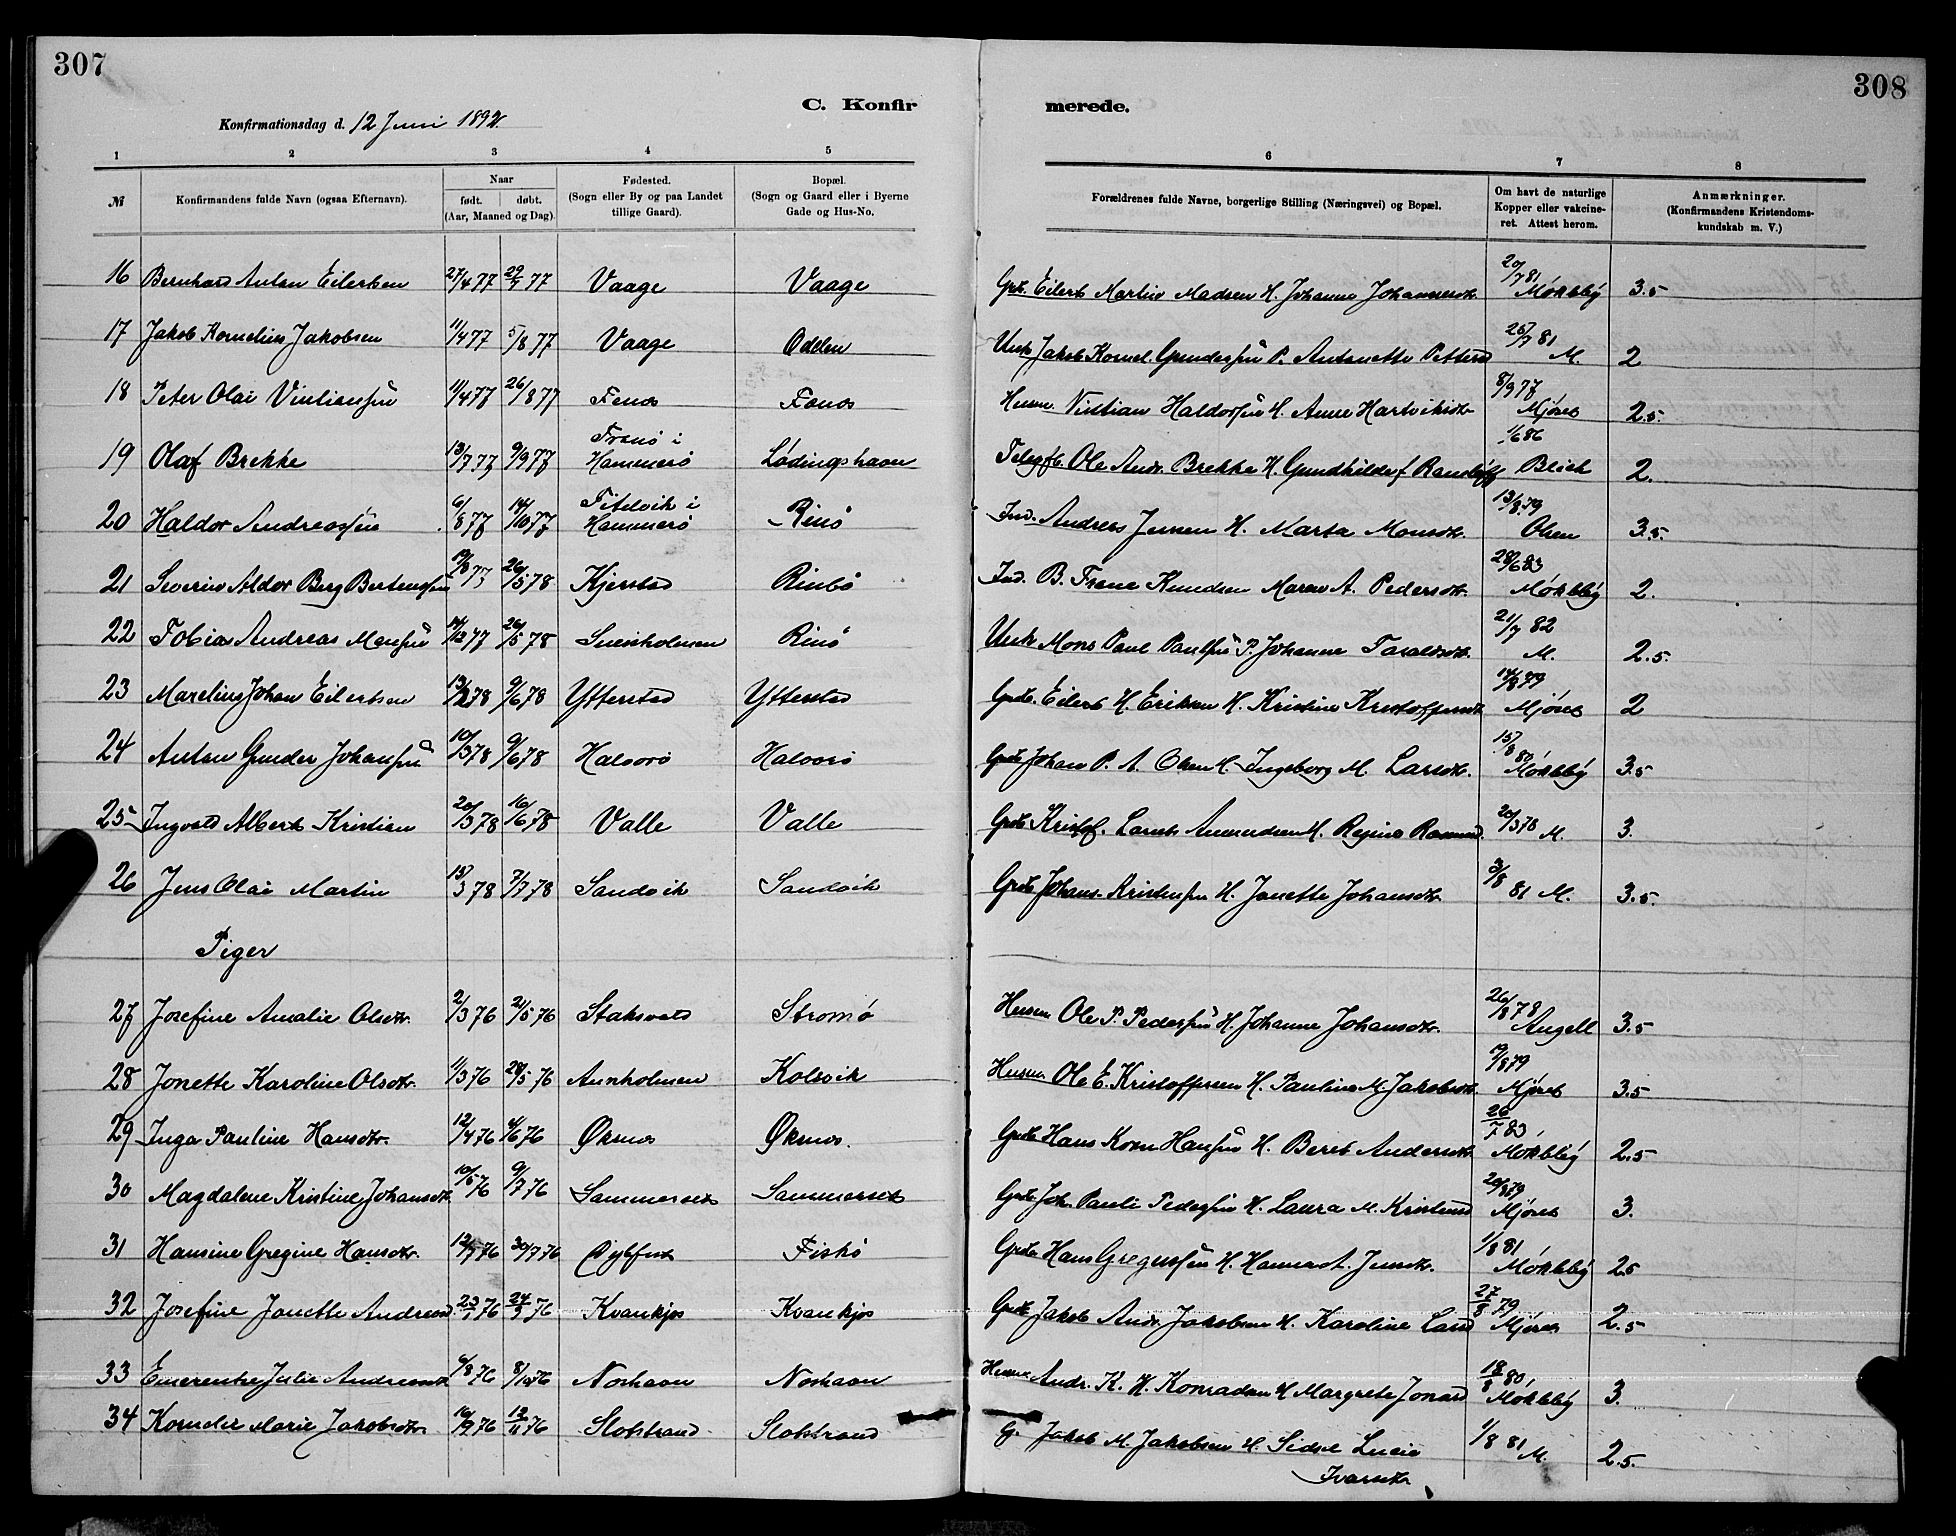 307
308
C. Konfir
merede.
Konfirmationsdag d. 12 Juni 1892.
1 2 3 4 5 6 7 8
№ Konfirmandens fulde Navn (ogsaa Efternavn). Naar født. døbt. (Aar, Maaned og Dag). Fødested. (Sogn eller By og paa Landet tillige Gaard). Bopæl. (Sogn og Gaard eller i Byerne Gade og Hus-No. Forældrenes fulde Navne, borgerlige Stilling (Næringsvei) og Bopæl. Om havt de naturlige Kopper eller vakcineret. Attest herom. Anmærkninger. (Konfirmandens Kristendomskundskab m. V.)
16 Bernhard Anton Eilertsen 27/4 77 29/7 77 Vaage Vaage Grdb. Eilert Martin Madsen H. Johanne Johannesdr. 20/7 81 Møkleby 3.5
17 Jakob Kornelius Jakobsen 11/4 77 5/8 77 Vaage Odden Unk Jakob Kornel. Gundersen P. Antonette Petters 26/7 81 M. 2
18 Peter Olai Vintiansen 11/4 77 26/8 77 Fenes Fenes Husm. Vintian Haldorsen H. Anne Hartviksdr 8/9 77 Mjøset 2.5
19 Olaf Brekke 13/7 77 9/9 77 Tranø i Hammerø Lødingshavn Telegfb. Ole Andr. Brekke H. Gundhild f. Ransløff 1/6 86 Blich 2.
20 Haldor Andreassen 6/8 77 14/10 77 Hammerø Rinø Ind. Andreas Jensen H. Marta Monsdr. 13/8 79 Olsen 3.5.
21 Severin Aldor Berg Bertensen 26/5 78 Kjerstad Rinø Ind. B. Frene Knudsen Maren A. Pedersdr. 28/6 83 Møkleby 2.
22 Tobias Andreas Monsen 26/5 78 Svensholmen Rinø Unk Mons Paul Paulsen P. Johanne Taraldsdr. 21/7 82 M. 2.5.
23 Marelius Johan Eilertsen 13/2 78 9/6 78 Ytterstad Ytterstad Grdb. Eilert H. Eriksen H. Kristine Kristoffersdr 14/8 79 Mjøset 2
24 Anton Gunder Johansen 10/3 78 9/6 78 Halvorø Halvorø Grdb Johan P. A. Olsen H. Ingeborg M. Larsdr. 15/8 80 Møkleby 3.5
25 Ingvald Albert Kristian 20/3 78 16/6 78 Valle Valle Grdb Kristof. Lornts Amundsen H. Regine Rasmusd. 20/3 78 M. 3.
26 Jens Olai Martin 15/3 78 7/7 78 Sandvik Sandvik Grdb Johans. Kristensen H. Janette Johansdr. 3/8 81 M. 3.5.
Piger
27 Josefine Amalie Olsdr. 2/3 76 21/5 76 Staksvold Stromø Husm Ole P. Pedersen H. Johanne Johansdr. 26/8 78 Angell 3.5
28 Jonette Karoline Olsdr. 1/3 76 28/5 76 Annholmen Kolvik Husm Ole E. Kristoffersen H. Pauline M. Jakobsdr. 19/8 79 Mjøset 3.5
29 Inga Pauline Hansdr. 12/4 76 4/6 76 Øksnes Øksnes. Grdb Hans Korn Hansen H. Beret Andersdr 26/7 83, Møkleby 2.5
30 Magdalene Kristine Johansdr 10/5 76 9/7 76 Sammerset Sammerset Grdb Joh. Pauli Pedersen H. Laura M. Kristensd 20/8 79 Mjøset 3.
31 Hansine Gregine Hansdr. 30/7 76 Fiskø Grdb Hans Gregussen H. Hanna A. Jensdr. 1/8 81 Møkleby 2.5
32 Josefine Janette Andreasd. 24/9 76 Kvankjos Kvankjos Grdb Jakob Andr. Jakobsen H. Karoline Larsd 27/8 79 Mjøset 2.5
33 Emerentse Julie Andreasdr 6/8 76 8/10 76 Neshavn Neshavn Husm Andr. K. H. Konradsen H Margrete Jonasd 18/8 80, Møkleby 3.
34 Kornelie Marie Jakobsdr. 16/9 76 12/11 76 Slotstrand Slotstrand G. Jakob M. Jakobsen H. Sidsel Lucie Ivarsdr. 1/8 81 M. 2.5.